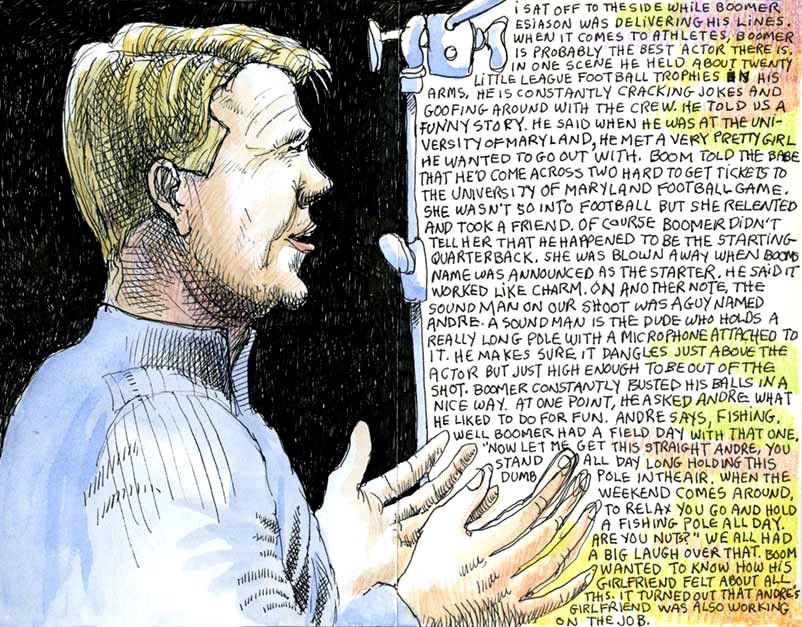 I SAT OFF TO THE SIDE WHILE BOOMER
ESIASON WAS DELIVERING HIS LINES.
WHEN IT COMES TO ATHLETES, BOOMER
IS PROBABLY THE BEST ACTOR THERE IS.
IN ONE SCENE HE HELD ABOUT TWENTY
LITTLE LEAGUE FOOTBALL TROPHIES IN HIS
ARMS. HE IS CONSTANTLY CRACKING JOKES AND
GOOFING AROUND WITH THE CREW. HE TOLD US A
FUNNY STORY. HE SAID WHEN HE WAS AT THE UNI-
VERSITY OF MARYLAND, HE MET A VERY PRETTY GIRL
HE WANTED TO GO OUT WITH. BOOM TOLD THE BABE
THAT HE'D COME ACROSS TWO HARD TO GET TICKETS TO
THE UNIVERSITY OF MARYLAND FOOTBALL GAME.
SHE WASN'T SO INTO FOOTBALL BUT SHE RELENTED
AND TOOK A FRIEND. OF COURSE BOOMER DIDN'T
TELL HER THAT HE HAPPENED TO BE THE STARTING
QUARTERBACK. SHE WAS BLOWN AWAY WHEN BOOMS
NAME WAS ANNOUNCED AS THE STARTER. HE SAID IT
WORKED LIKE CHARM. ON ANOTHER NOTE, THE
SOUND MAN ON OUR SHOOT WAS A GUY NAMED
ANDRE. A SOUND MAN IS THE DUDE WHO HOLDS A
REALLY LONG POLE WITH A MICROPHONE ATTACHED TO
IT. HE MAKES SURE IT DANGLES JUST ABOVE THE
ACTOR BUT JUST HIGH ENOUGH TO BE OUT OF THE
SHOT. BOOMER CONSTANTLY BUSTED HIS BALLS IN A
NICE WAY. AT ONE POINT, HE ASKED ANDRE WHAT
HE LIKED TO DO FOR FUN. ANDRE SAYS, FISHING.
WELL BOOMER HAD A FIELD DAY WITH THAT ONE.
"NOW LET ME GET THIS STRAIGHT ANDRE, YOU
STAND ALL DAY LONG HOLDING THIS
DUMB POLE IN THE AIR. WHEN THE
WEEKEND COMES AROUND,
TO RELAX YOU GO AND HOLD
A FISHING POLE ALL DAY.
ARE YOU NUTS?" WE ALL HAD
A BIG LAUGH OVER THAT. BOOM
WANTED TO KNOW HOW HIS
GIRLFRIEND FELT ABOUT ALL
THIS. IT TURNED OUT THAT ANDRE'S
GIRLFRIEND WAS ALSO WORKING
ON THE JOB.